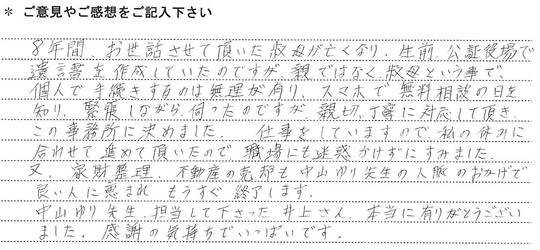 * ご意見やご感想をご記入下さい
8年間、お世話させて頂いた叔母が亡くなり、生前、公証役場で
遺言書を作成していたのですが、親ではなく、叔母という事で、
個人で手続きするのは無理が有り、スマホで無料相談の日を
知り、緊張しながら伺ったのですが、親切、丁寧に対応して頂き、
この事務所に決めました。 仕事をしていますので、私の休みに
合わせて進めて頂いたので、職場にも迷惑かけずにすみました。
又、家財整理、不動産の売却も中山ゆり先生の人脈のおかげで
良い人に恵まれ、もうすぐ終了します。
中山ゆり先生、担当して下さった井上さん、本当に有りがとうござい
ました。感謝の気持ちでいっぱいです。